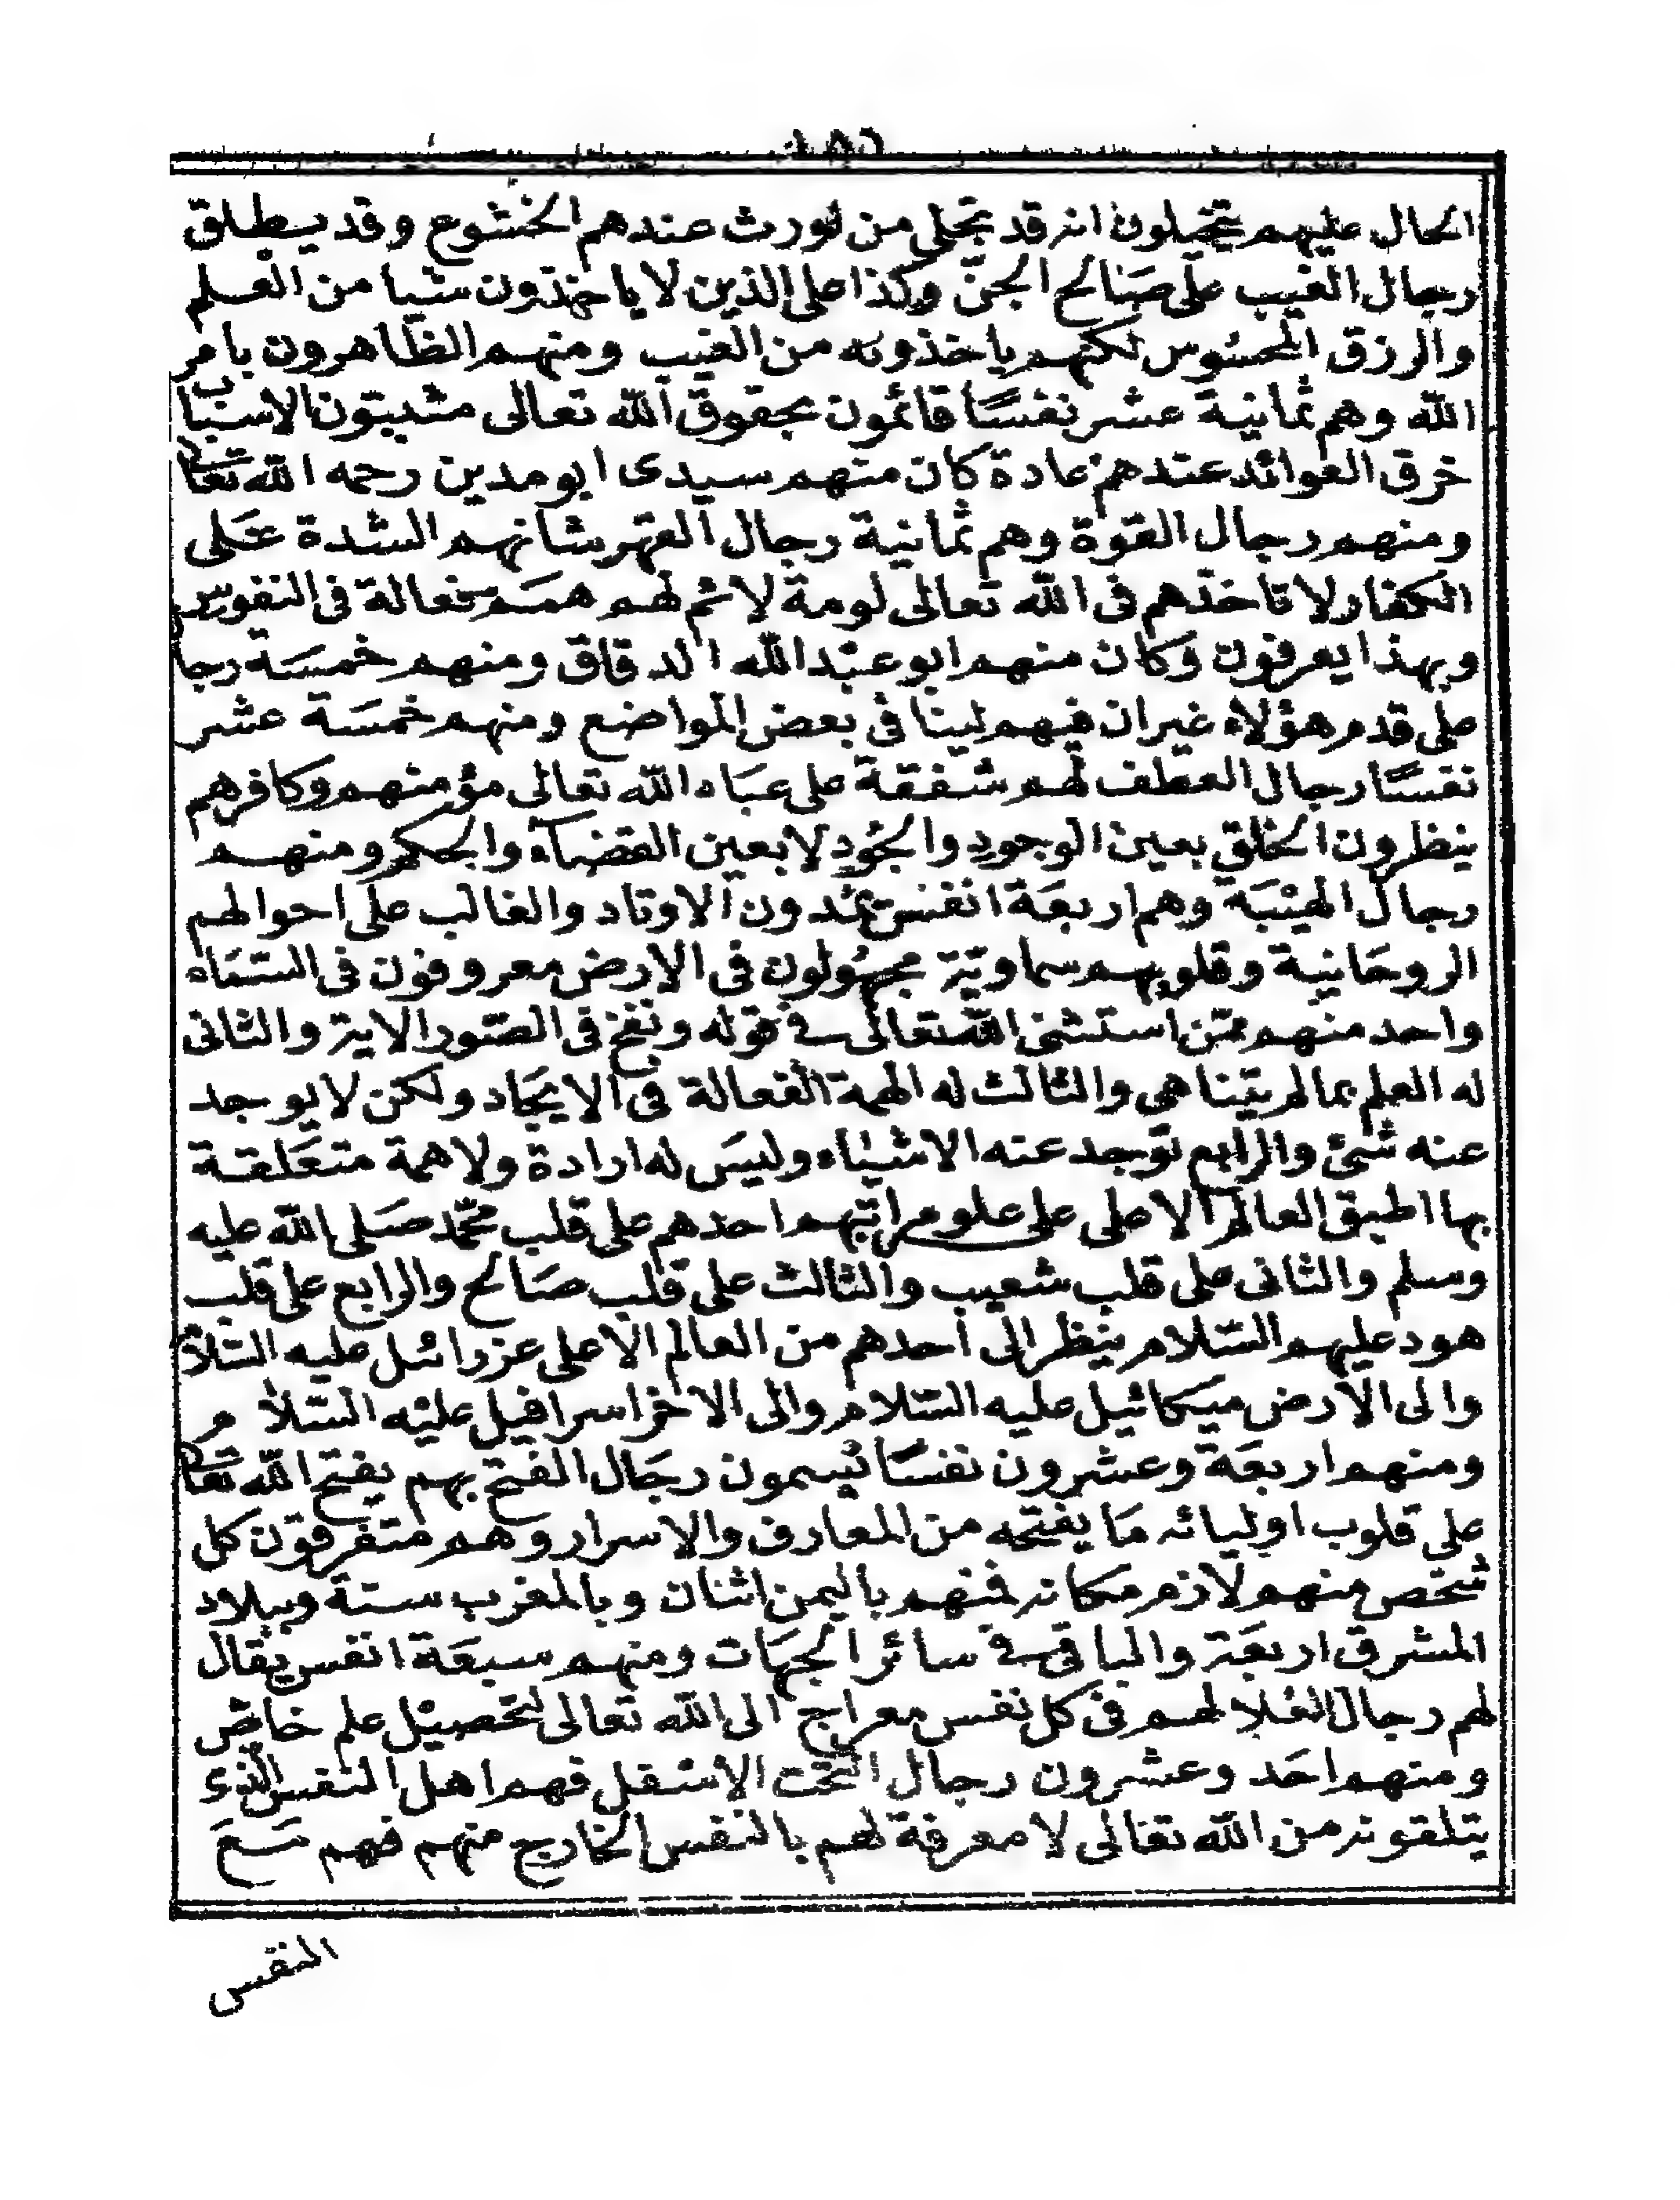 الحال عليهم يتخيلون انه قد تجلى من نورث عندهم الخشوع وقد يطلق
رجال الغيب على صَالح الجنّ وكذا على الذين لا ياخذون شيا من العلم
والرزق المحسُوس لكنهم ياخذونه من الغيب ومنهم الظاهرون بامر
الله وهم ثمانية عشر نفسًا قائمون بحقوق الله تعالى مثبتون الاسباب
خرق العوائد عندهم عادة كان منهم سيدى ابو مدين رحمه الله تعالى
ومنهم رجال القوة وهم ثمانية رجال القهر شانهم الشدة عَلى
الكفار لا تاخذهم فى الله تعالى لومة لائم لهم همَم فعالة فى النفوس
وبهذا يعرفون وكان منهم ابو عبْد الله الدقاق ومنهم خمسَة رجال
على قدم هؤلاء غير ان فيهم لينا فى بعض المواضع ومنهم خمسَة عشر
نفسًا رجال العطف لهم شفقة على عبَاد الله تعالى مؤمنهم وكافرهم
ينظرون الخلق بعين الوجود والجُود لا بعين القضاء والحكم ومنهم
رجال الهيْبَة وهم اربعَة انفس يمُدون الاوتاد والغالب على احوالهم
الروحَانية وقلوبهم سماويّة مجهُولون فى الارض معروفون فى السّمَاء
واحد منهم ممّن استثنى الله تعالى فى قوله ونفخ فى الصّور الاية والثانى
له العلم بما لم يتناهى والثالث له الهمة الفعالة فى الايجَاد ولكن لا يوجد
عنه شئ والرابع توجد عنه الاشيَاء وليسَ له ارادة ولا همة متعَلقة
بها اطبق العالم الاعلى على علو مراتبهم احدهم على قلب محمّد صَلى الله عليه
وسلم والثانى على قلب شعيب والثالث على قلب صَالح والرابع على قلب
هود عليهم السّلام ينظر الى احدهم من العالم الاعلى عزرائيل عليه السّلام
والى الارض ميكائيل عليه السّلام والى الاخر اسرافيل عليْه السّلام
ومنهم اربعَة وعشرون نفسًا يُسمون رجَال الفتح بهم يفتح الله تعالى
على قلوب اوليائه مَا يفتحه من المعارف والاسرار وهم متفرقون كل
شخص منهم لازم مكانه فمنهم باليمن اثنان وبالمغرب ستة وببلاد
المشرق اربعَة والباقى فى سائر الجهَات ومنهم سبعَة انفس يقال
لهم رجال العُلا لهم فى كل نفس معراج الى الله تعالى لتحصيْل علم خاصّ
ومنهم احَد وعشرون رجال التحت الاسفل فهم اهل النفس الذى
يتلقونه من الله تعالى لا معرفة لهم بالنفس الخارج منهم فهم مَعَ
النفس